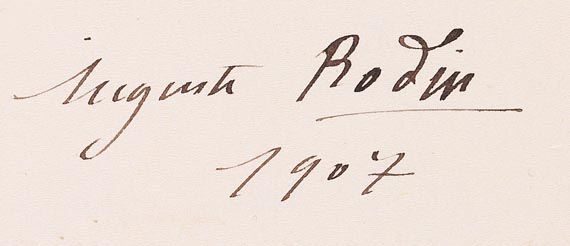 Auguste Rodin
1907